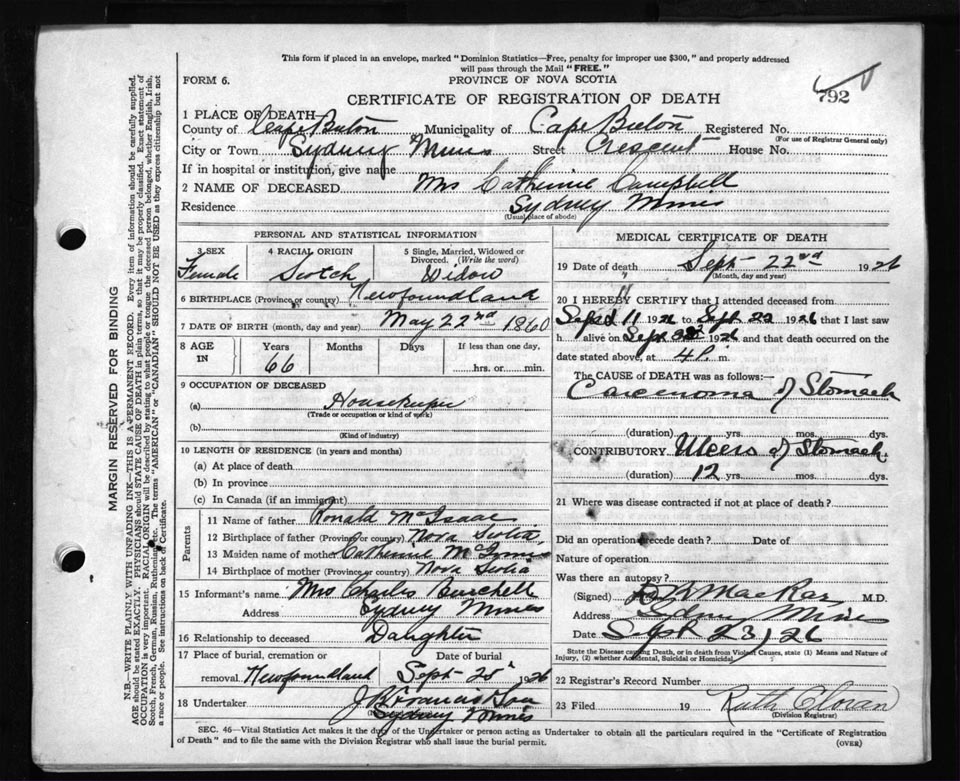 This form if placed in an envelope, marked "Dominion Statistics—Free, penalty for improper use $300," and properly addressed
will pass through the Mail "FREE."
FORM 6.
PROVINCE OF NOVA SCOTIA
792
CERTIFICATE OF REGISTRATION OF DEATH
1 PLACE OF DEATH—
County of Cape Breton Municipality of Cape Breton Registered No.
(For use of Registrar General only)
City or Town Sydney Mines Street Crescent House No.
If in hospital or institution, give name
2 NAME OF DECEASED Mrs Catherine Campbell
Residence Sydney Mines
(Usual place of abode)
PERSONAL AND STATISTICAL INFORMATION
3 SEX 4 RACIAL ORIGIN 5 Single, Married, Widowed or
Divorced. (Write the word)
Female Scotch Widow
6 BIRTHPLACE (Province or country) Newfoundland
7 DATE OF BIRTH (month, day and year) May 22nd 1860
8 AGE IN Years Months Days If less than one day,
66 hrs. or min.
9 OCCUPATION OF DECEASED
(a) Housekeeper
(Trade or occupation or kind of work)
(b)
(Kind of industry)
10 LENGTH OF RESIDENCE (in years and months)
(a) At place of death
(b) In province
(c) In Canada (if an immigrant)
Parents
11 Name of father Ronald McIsaac
12 Birthplace of father (Province or country) Nova Scotia
13 Maiden name of mother Catherine
14 Birthplace of mother (Province or country) Nova Scotia
15 Informant's name Mrs Charles Burchell
Address Sydney Mines
16 Relationship to deceased Daughter
17 Place of burial, cremation or Date of burial
removal Newfoundland Sept 25 1926
18 Undertaker J Francis & Son
Sydney Mines
MEDICAL CERTIFICATE OF DEATH
19 Date of death Sept 22nd 1926
(Month, day and year)
20 I HEREBY CERTIFY that I attended deceased from
11 1926 to Sept 22 1926 that I last saw
h alive on Sept 22 1926 and that death occurred on the
date stated above, at 4 P. m.
The CAUSE of DEATH was as follows:—
Carcenoma of Stomach
(duration) yrs. mos. dys.
CONTRIBUTORY Ulcers of Stomach
(duration) 12 yrs. mos. dys.
21 Where was disease contracted if not at place of death?
Did an operation precede death? Date of
Nature of operation
Was there an autopsy?
(Signed) MacRae M.D.
Address Sydney Mines
Date Sept 23/26
State the Disease causing Death, or in death from Violent Causes, state (1) Means and Nature of
Injury, (2) whether Accidental, Suicidal or Homicidal.
22 Registrar's Record Number
23 Filed 19 Ruth
(Division Registrar)
SEC. 46—Vital Statistics Act makes it the duty of the Undertaker or person acting as Undertaker to obtain all the particulars required in the "Certificate of Registration
of Death" and to file the same with the Division Registrar who shall issue the burial permit. (OVER)
MARGIN RESERVED FOR BINDING
N.B.—WRITE PLAINLY WITH UNFADING INK—THIS IS A PERMANENT RECORD. Every item of information should be carefully supplied.
AGE should be stated EXACTLY. PHYSICIANS should STATE CAUSE OF DEATH in plain terms, so that it may be properly classified. Exact statement of
OCCUPATION is very important. RACIAL ORIGIN will be described by stating to what people or tongue the deceased person belonged, whether English, Irish,
Scotch, French, German, Russian, Ruthenian, etc. The terms "AMERICAN" or "CANADIAN" SHOULD NOT BE USED as they express citizenship but not
a race or people. See instructions on back of Certificate.